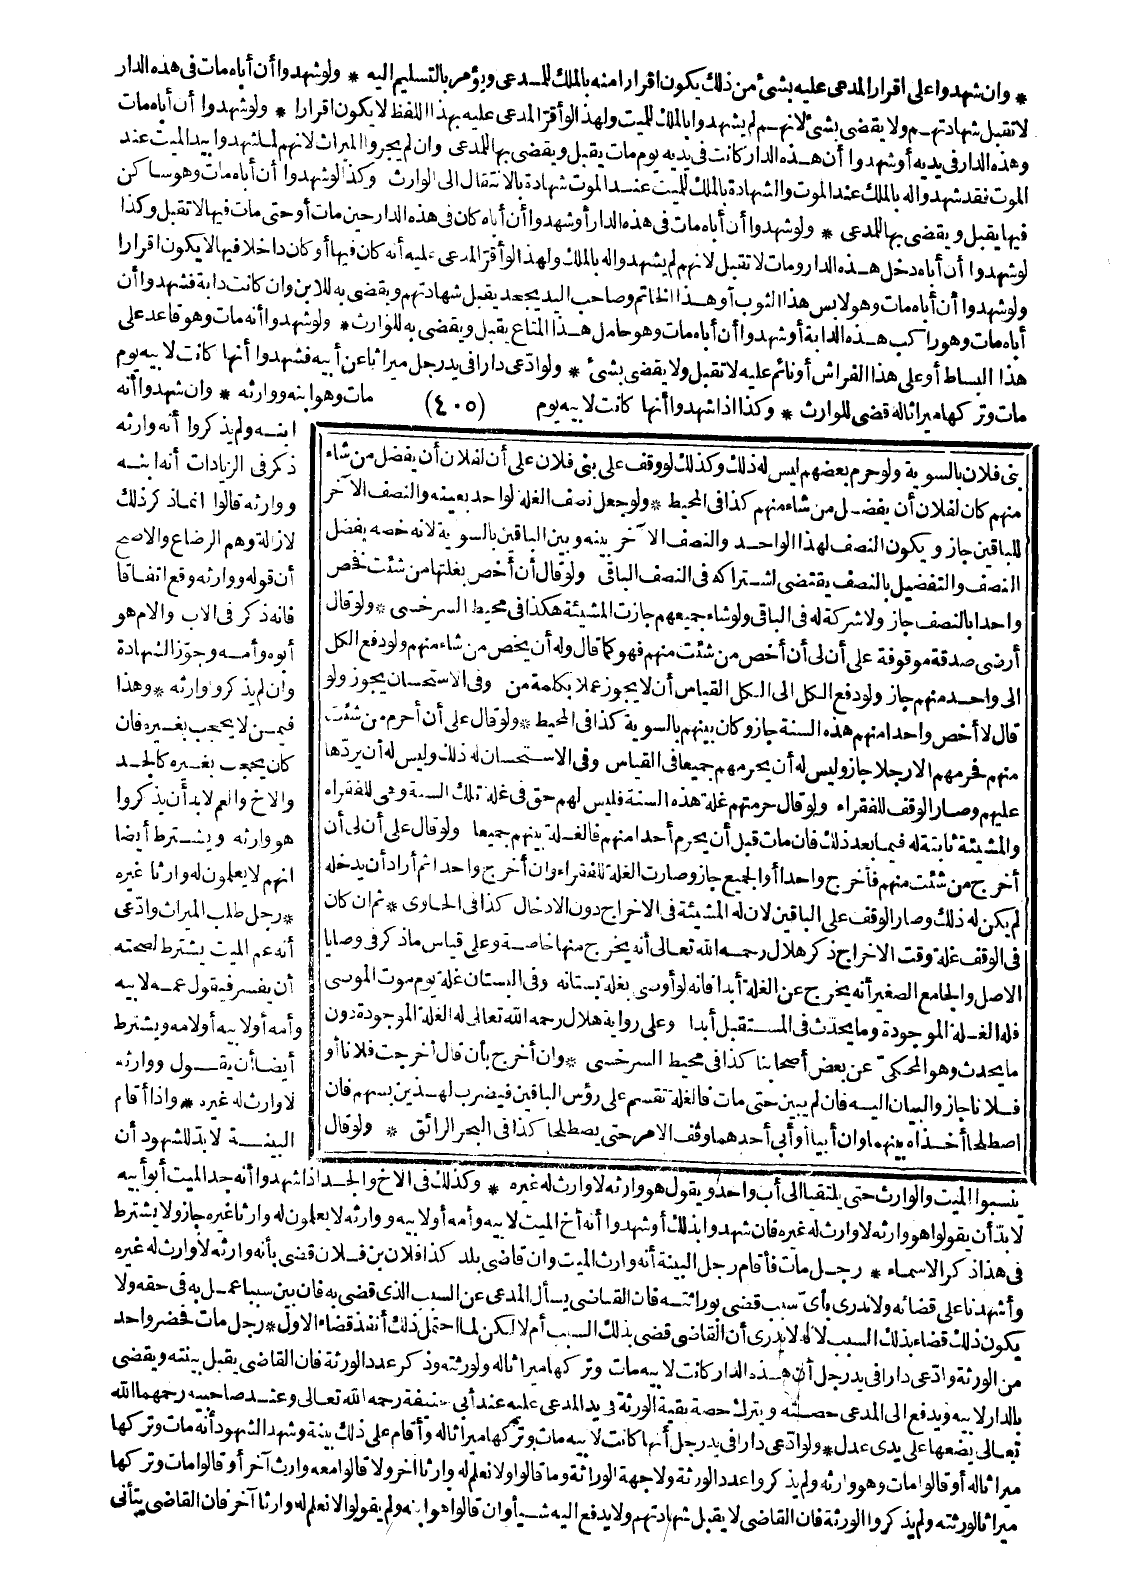 * وان شهدوا على اقرار المدعى عليه بشئ من ذلك يكون اقرارا منه بالملك للمدعى ويؤمر بالتسليم اليه * ولو شهدوا أن أباه مات فى هذه الدار
لا تقبل شهادتهم ولا يقضى بشئ لانهم لم يشهدوا بالملك للميت ولهذا لو أقر المدعى عليه بهذا اللفظ لا يكون اقرارا * ولو شهدوا أن أباه مات
وهذه الدار فى يديه أو شهدوا أن هذه الدار كانت فى يديه يوم مات يقبل ويقضى بها للمدعى وان لم يجروا الميراث لانهم لما شهدوا بيد الميت عند
الموت فقد شهدوا له بالملك عند الموت والشهادة بالملك للميت عند الموت شهادة بالانتقال الى الوارث وكذا لو شهدوا أن أباه مات وهو ساكن
فيها يقبل ويقضى بها للمدعى * ولو شهدوا أن أباه مات فى هذه الدار أو شهدوا أن أباه كان فى هذه الدار حين مات أو حتى مات فيها لا تقبل وكذا
لو شهدوا أن أباه دخل هذه الدار ومات لا تقبل لانهم لم يشهدوا له بالملك ولهذا لو أقر المدعى عليه أنه كان فيها أو كان داخلا فيها لا يكون اقرارا
ولو شهدوا أن أباه مات وهو لابس هذا الثوب أو هذا الخاتم وصاحب اليد يجحد يقبل شهادتهم ويقضى به للابن وان كانت دابة فشهدوا أن
أباه مات وهو راكب هذه الدابة أو شهدوا أن أباه مات وهو حامل هذا المتاع يقبل ويقضى به للوارث * ولو شهدوا أنه مات وهو قاعد على
هذا البساط أو على هذا الفراش أو نائم عليه لا تقبل ولا يقضى بشئ * ولو ادّعى دارا فى يد رجل ميراثا عن أبيه فشهدوا أنها كانت لابيه يوم
مات وتركها ميراثا له قضى للوارث * وكذا اذا شهدوا أنها كانت لابيه يوم (٤٠٥) مات وهو ابنه ووارثه * وان شهدوا أنه
ابنه ولم يذكروا أنه وارثه
ذكر فى الزيادات أنه ابنه
ووارثه قالوا انما ذكر ذلك
لازالة وهم الرضاع والاصح
أن قوله ووارثه وقع اتفاقا
فانه ذكر فى الاب والام هو
أبوه وأمه وجوّز الشهادة
وان لم يذكروا وارثه * وهذا
فيمن لا يحجب بغيره فان
كان يحجب بغيره كالجد
والاخ والعم لا بد أن يذكروا
هو وارثه ويشترط أيضا
انهم لا يعلمون له وارثا غيره
* رجل طلب الميراث وادّعى
أنه عم الميت يشترط لصحته
أن يفسر فيقول عمه لابيه
وأمه أو لابيه أو لامه ويشترط
أيضا أن يقول ووارثه
لا وارث له غيره * واذا أقام
البينة لا بد للشهود أن
بنى فلان بالسوية ولو حرم بعضهم ليس له ذلك وكذلك لو وقف على بنى فلان على أن لفلان أن يفضل من شاء
منهم كان لفلان أن يفضل من شاء منهم كذا فى المحيط * ولو جعل نصف الغلة لواحد بعينه والنصف الآخر
للباقين جاز ويكون النصف لهذا الواحد والنصف الآخر بينه وبين الباقين بالسوية لانه خصه بفضل
النصف والتفضيل بالنصف يقتضى اشتراكه فى النصف الباقى ولو قال أن أخص بغلتها من شئت فخص
واحدا بالنصف جاز ولا شركة له فى الباقى ولو شاء جميعهم جازت المشيئة هكذا فى محيط السرخسى * ولو قال
أرضى صدقة موقوفة على أن لى أن أخص من شئت منهم فهو كما قال وله أن يخص من شاء منهم ولو دفع الكل
الى واحد منهم جاز ولو دفع الكل الى الكل القياس أن لا يجوز عملا بكلمة من وفى الاستحسان يجوز ولو
قال لا أخص واحدا منهم هذه السنة جاز وكان بينهم بالسوية كذا فى المحيط * ولو قال على أن أحرم من شئت
منهم فحرمهم الا رجلا جاز وليس له أن يحرمهم جميعا فى القياس وفى الاستحسان له ذلك وليس له أن يردّها
عليهم وصار الوقف للفقراء ولو قال حرمتهم غلة هذه السنة فليس لهم حق فى غلة تلك السنة وهى للفقراء
والمشيئة ثابتة له فيما بعد ذلك فان مات قبل أن يحرم أحدا منهم فالغلة بينهم جميعا ولو قال على أن لى أن
أخرج من شئت منهم فأخرج واحدا أو الجميع جاز وصارت الغلة للفقراء وان أخرج واحدا ثم أراد أن يدخله
لم يكن له ذلك وصار الوقف على الباقين لان له المشيئة فى الاخراج دون الادخال كذا فى الحاوى * ثم ان كان
فى الوقف غلة وقت الاخراج ذكر هلال رحمه الله تعالى أنه يخرج منها خاصة وعلى قياس ما ذكر فى وصايا
الاصل والجامع الصغير أنه يخرج عن الغلة أبدا فانه لو أوصى بغلة بستانه وفى البستان غلة يوم موت الموصى
فله الغلة الموجودة وما يحدث فى المستقبل أبدا وعلى رواية هلال رحمه الله تعالى له الغلة الموجودة دون
ما يحدث وهو المحكىّ عن بعض أصحابنا كذا فى محيط السرخسى * وان أخرج بأن قال أخرجت فلانا أو
فلانا جاز والبيان اليه فان لم يبين حتى مات فالغلة تقسم على رؤس الباقين فيضرب لهذين بسهم فان
اصطلحا أخذاه بينهما وان أبيا أو أبى أحدهما وقف الامر حتى يصطلحا كذا فى البحر الرائق * ولو قال
ينسبوا الميت والوارث حتى يلتقيا الى أب واحد ويقول هو وارثه لا وارث له غيره * وكذلك فى الاخ والجد اذا شهدوا أنه جد الميت أبو أبيه
لا بدّ أن يقولوا هو وارثه لا وارث له غيره فان شهدوا بذلك أو شهدوا أنه أخ الميت لابيه وأمه أو لابيه ووارثه لا يعلمون له وارثا غيره جاز ولا يشترط
فى هذا ذكر الاسماء * رجل مات فأقام رجل البينة أنه وارث الميت وان قاضى بلد كذا فلان بن فلان قضى بأنه وارثه لا وارث له غيره
وأشهدنا على قضائه ولا ندرى بأىّ سبب قضى بوراثته فان القاضى يسأل المدعى عن السبب الذى قضى به فان بين سببا عمل به فى حقه ولا
يكون ذلك قضاء بذلك السبب لانه لا يدرى أن القاضى قضى بذلك السبب أم لا لكن لما احتمل ذلك أنفذ قضاء الاول * رجل مات فحضر واحد
من الورثة وادّعى دارا فى يد رجل أن هذه الدار كانت لابيه مات وتركها ميراثا له ولورثته وذكر عدد الورثة فان القاضى يقبل بينته ويقضى
بالدار لابيه ويدفع الى المدعى حصته ويترك حصة بقية الورثة فى يد المدعى عليه عند أبى حنيفة رحمه الله تعالى وعند صاحبيه رحمهما الله
تعالى يضعها على يدى عدل * ولو ادّعى دارا فى يد رجل أنها كانت لابيه مات وتركها ميراثا له وأقام على ذلك بينة وشهد الشهود أنه مات وتركها
ميراثا له أو قالوا مات وهو وارثه ولم يذكروا عدد الورثة ولا جهة الوراثة وما قالوا ولا نعلم له وارثا آخر ولا قالوا معه وارث آخر أو قالوا مات وتركها
ميراثا لورثته ولم يذكروا الورثة فان القاضى لا يقبل شهادتهم ولا يدفع اليه شيأ وان قالوا هو ابنه ولم يقولوا لا نعلم له وارثا آخر فان القاضى يتأنى